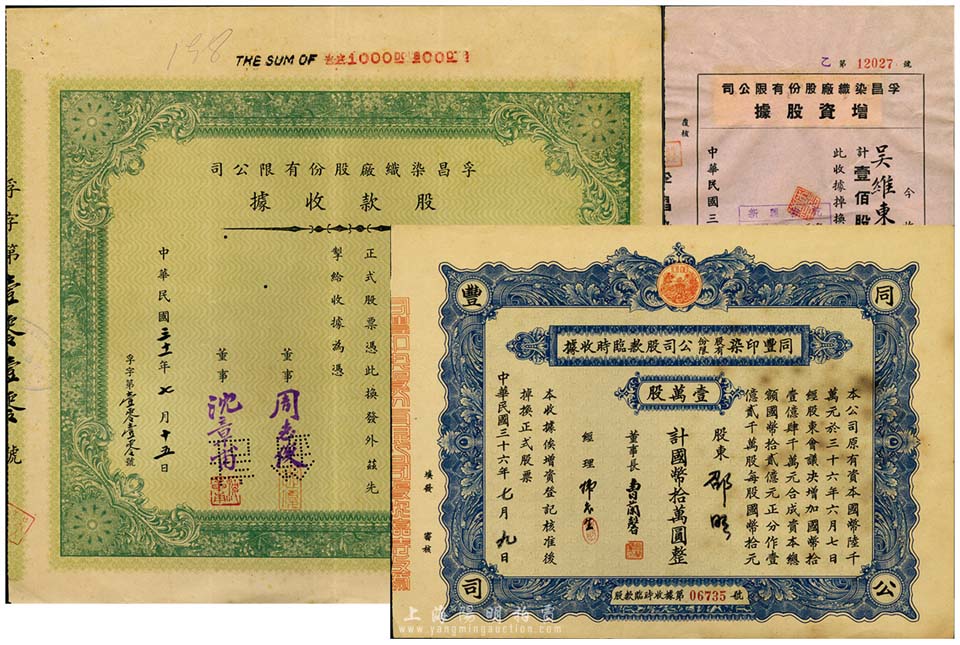 THE SUM OF
孚昌染織廠股份有限公司
股款收據
正式股票憑此換發外茲先
掣給收據為憑
董事
董事 沈
中華民國三十一年七月十五日
孚字第壹零壹零號
孚字第壹零壹零號
乙第 12027 號
孚昌染織廠股份有限公司
增資股據
吳維東
計壹佰股
此收據掉換
中華民國三
覆核
同豐公司
同豐印染股份有限公司股款臨時收據
本公司原有資本國幣陸千
萬元於三十六年六月七日
經股東會議決增加國幣拾
壹億肆千萬元合成資本總
額國幣拾貳億元正分作壹
億貳千萬股每股國幣拾元
壹萬股
股東 邵明
計國幣拾萬圓整
董事長
經理
本收據俟增資登記核准後
掉換正式股票
中華民國三十六年七月九日
填發
審核
股款臨時收據第 06735 號
上海陽明拍賣
www.yangmingauction.com